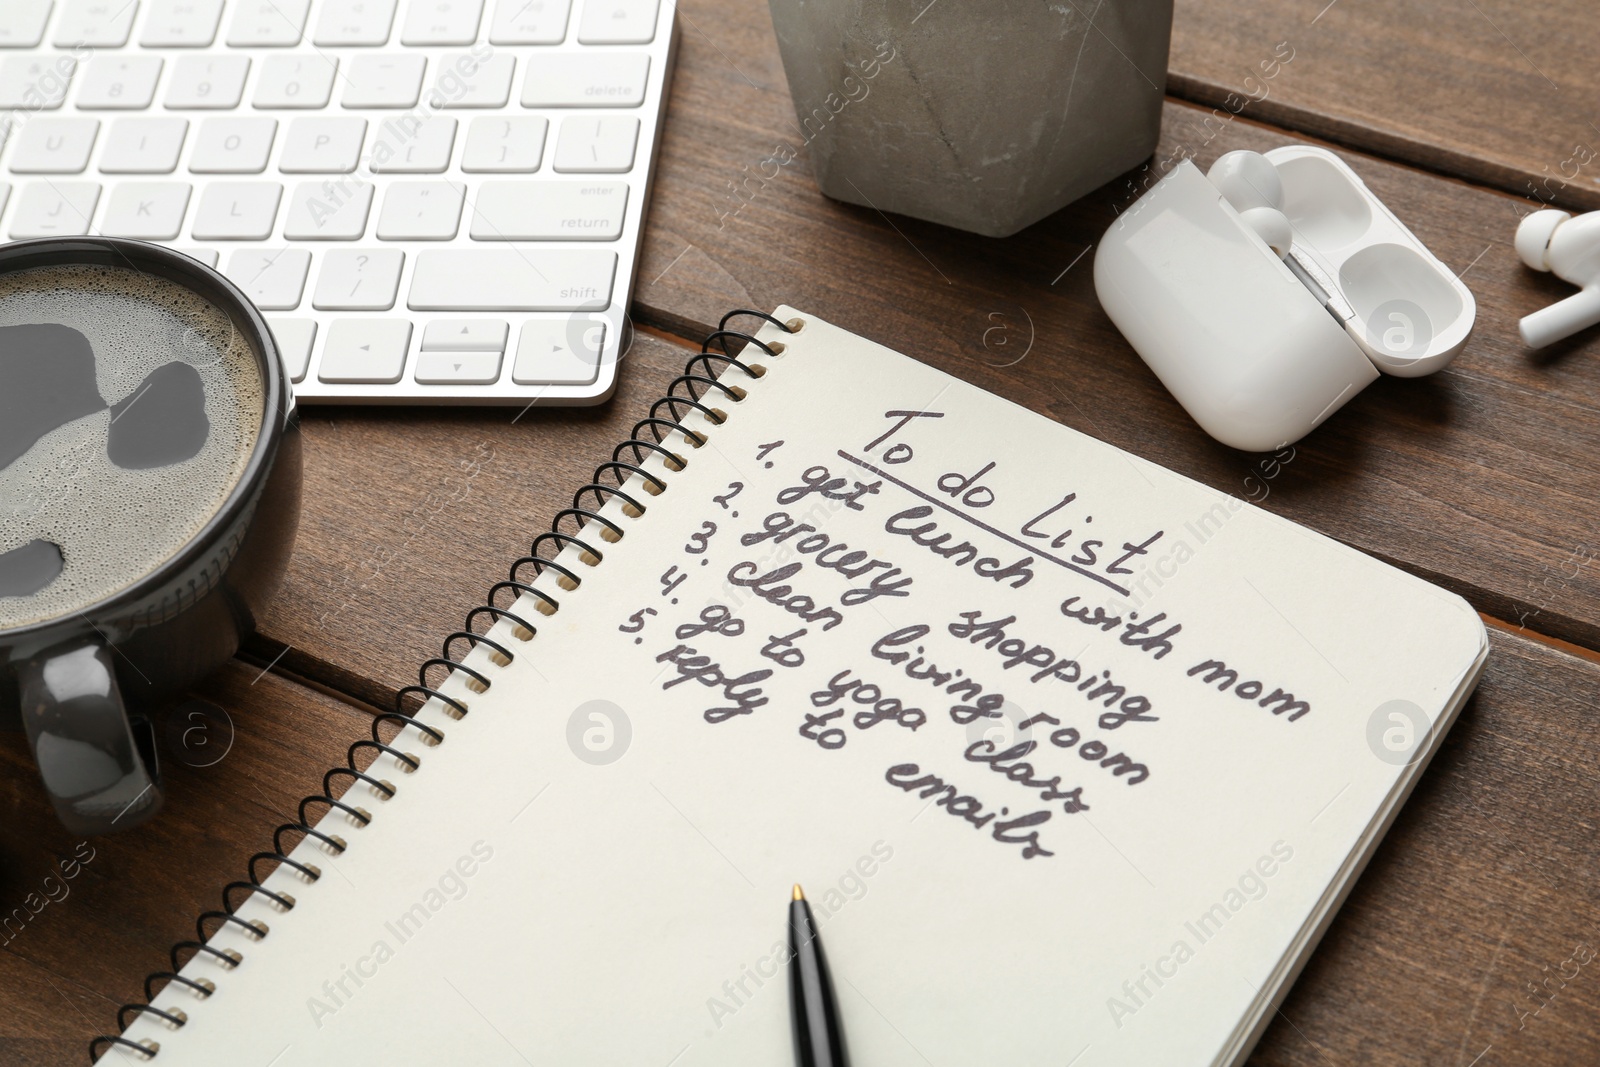 To do List
1. get lunch with mom
2. grocery shopping
3. clean living room
4. go to yoga class
5. reply to emails
delete
U I O P { [ } ] | \
J K L : ; " ' enter return
> . ? / shift
* 8 ( 9 ) 0 - + =
Africa Images
a